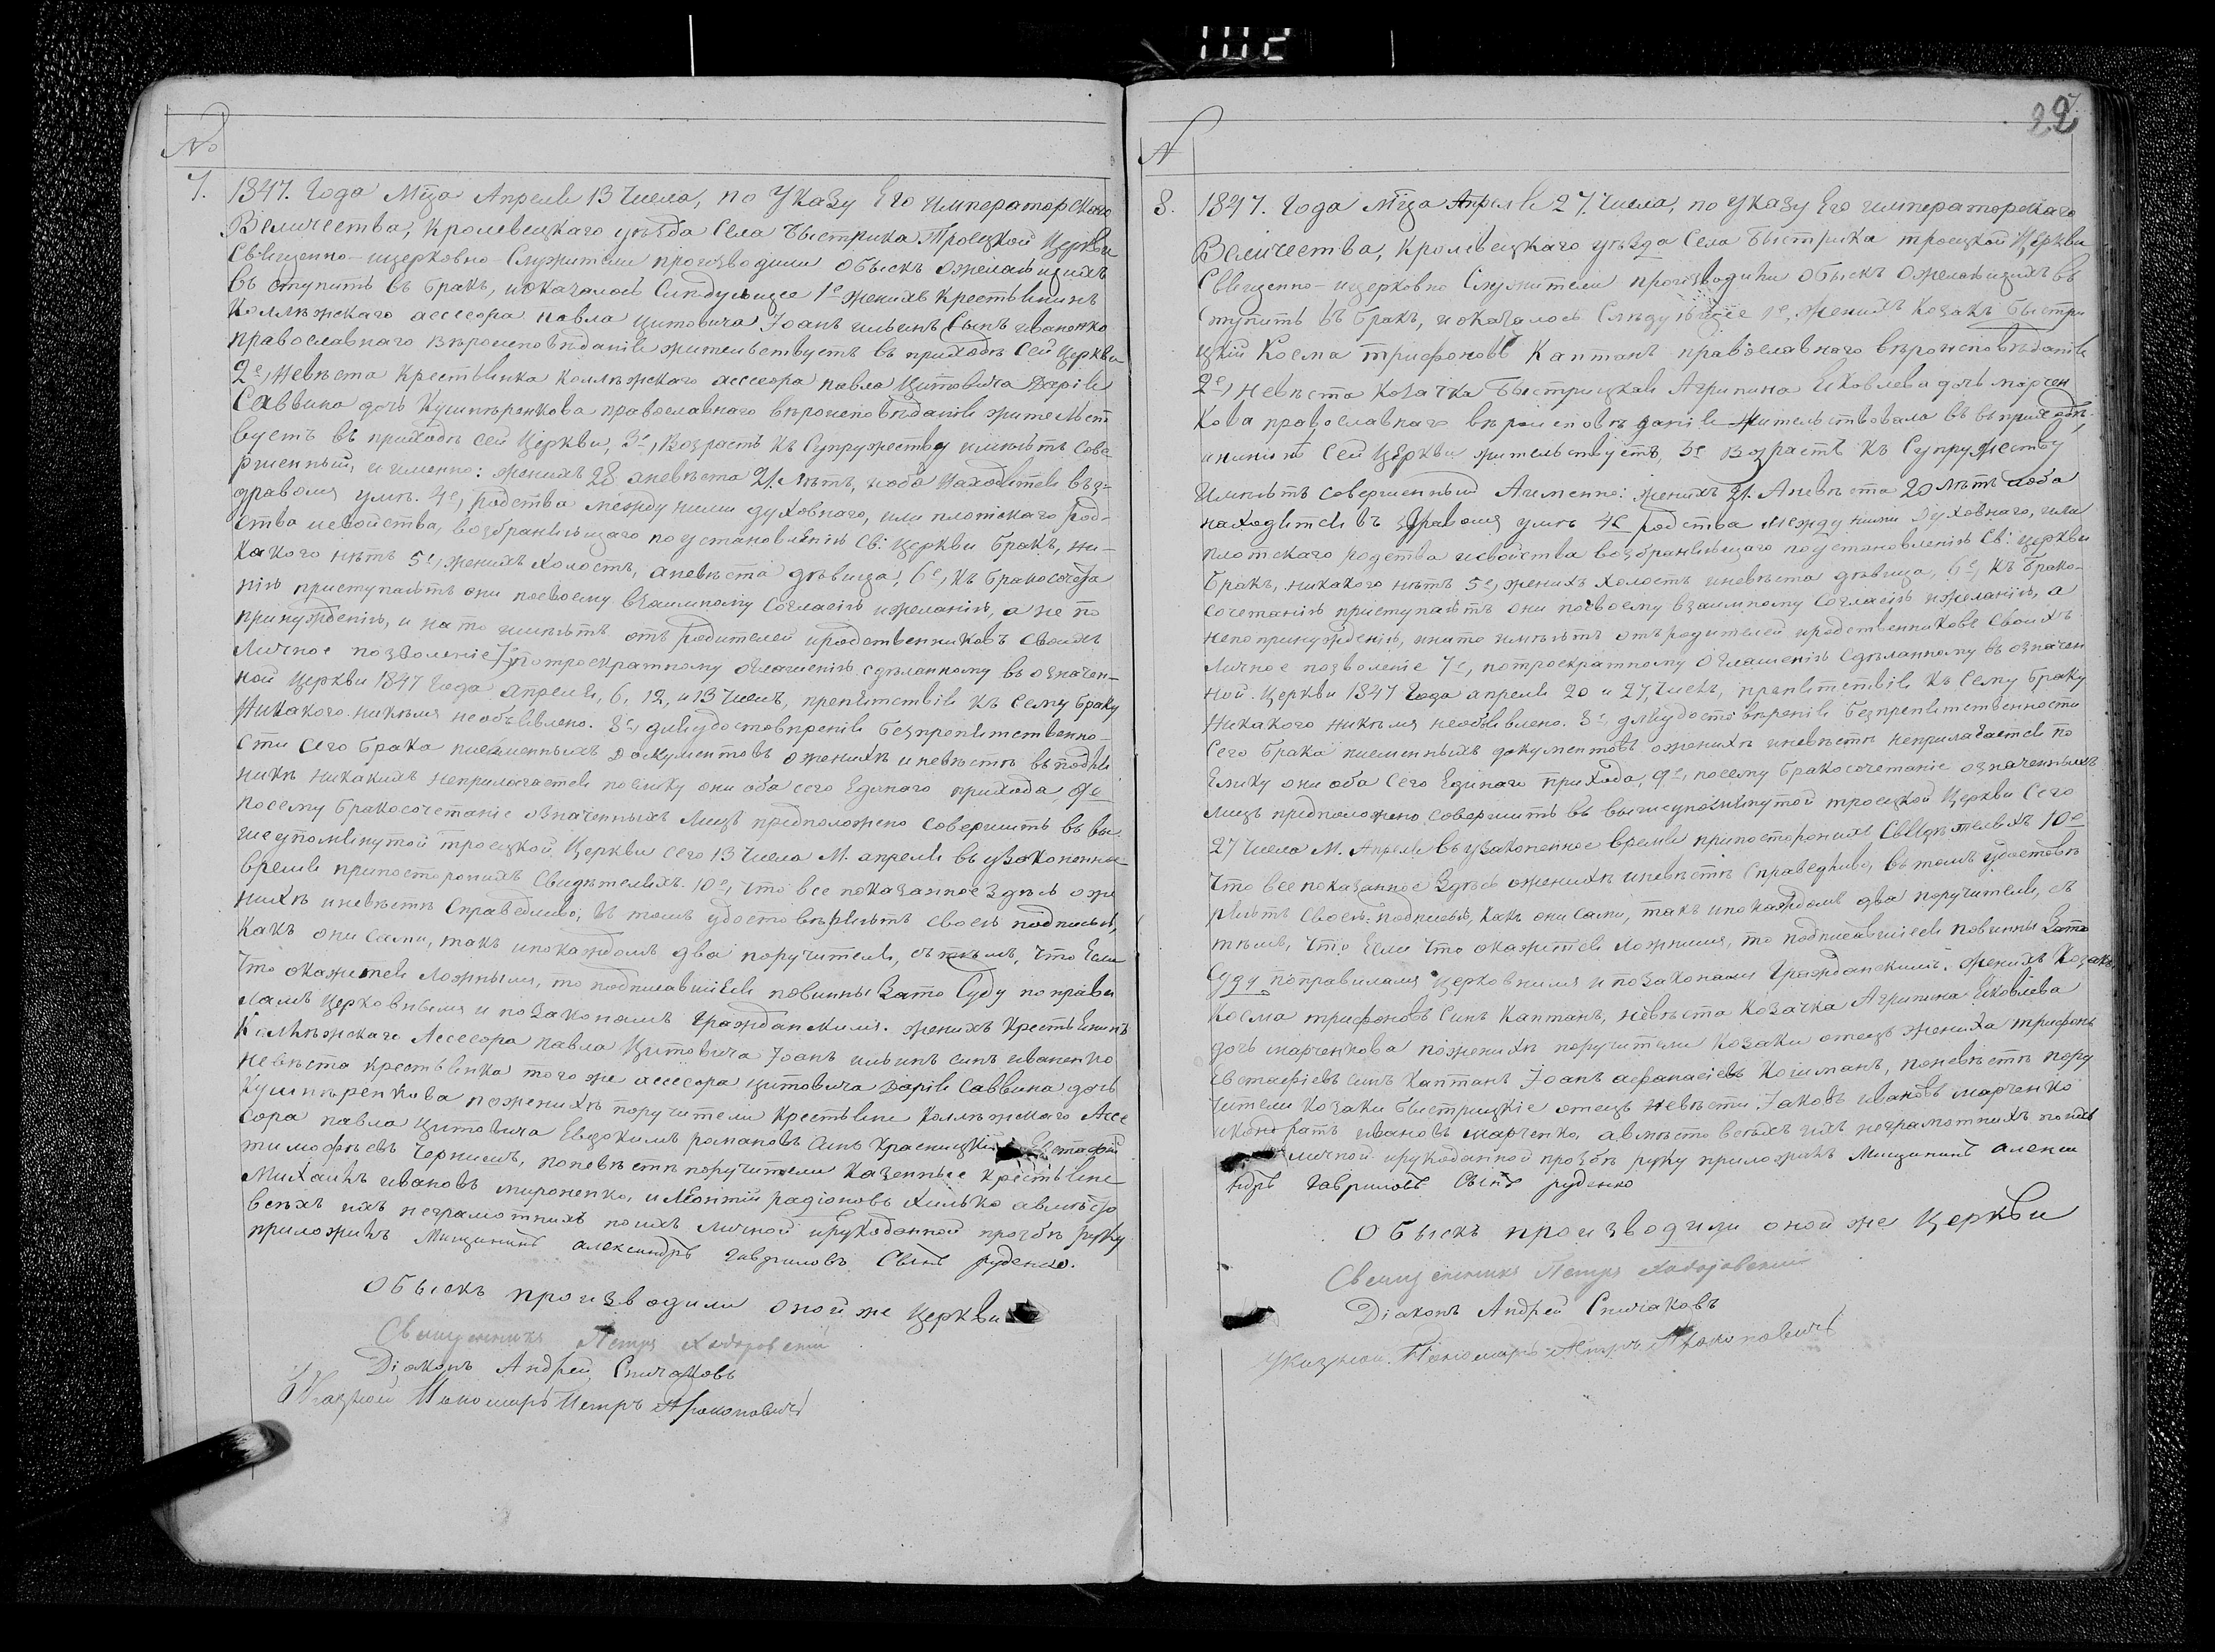 1112
№
7. 1847. Года Мца Апреля 13 Числа, по Указу Его Императорского
Величества, Кролевецкаго уѣзда Села Быстрика Троецкой Церкви
Священно-ицерковно-Служители производили обыскъ ожелающихъ
въ ступить въ бракъ, иоказалось Слѣдующее 1е женихъ крестьянинъ
Коллѣжскаго ассесора павла цитовича Іоанъ ильинъ Сынъ иваненко
православнаго вѣроисповѣданія жительствуетъ въ приходѣ Сей Церкви
2е, Невѣста Крестьянка коллѣжскаго ассесора павла Цитовича Дарія
Саввина дочь Кушнѣренкова православнаго вѣроисповѣданія жительст
вуетъ въ приходѣ сей Церкви, 3е, Возрастъ къ Супружеству имѣютъ сове
ршенный, и именно: женихъ 28 аневѣста 21. лѣтъ, иоба находятся въз-
дравомъ умѣ. 4е, родства между ними духовнаго, или плотскаго род-
ства исвойства, возбраняющаго поустановленію Св: Церкви бракъ, ни-
какого нѣтъ 5е, женихъ холостъ, аневѣста дѣвица, 6е, къ бракосочета
нію приступаютъ они посвоему взаимному Согласію ижеланію, а не по
принужденію, и на то имѣютъ отъ родителей иродственниковъ своихъ
Личное позволеніе 7е, потроекратному оглашенію сдѣланному въ означен-
ной Церкви 1847 года апреля, 6, 12, и 13 Числъ, препятствія къ сему браку
Никакого никѣмъ необъявлено. 8е, дляудостовѣренія безпрепятственно-
сти Сего брака письменныхъ документовъ оженихѣ и невѣстѣ въ подли
никѣ никакихъ неприлагается поелику они оба сего Единаго прихода, 9е
посему бракосочетаніе означенныхъ Лицъ предположено совершить въ вы
шеупомянутой троецкой Церкви сего 13 Числа М. апреля въ узаконенное
время припостороннихъ Свидѣтеляхъ. 10е, Что все показанное здѣсь оже
нихѣ иневѣстѣ Справедливо, въ томъ удостовѣряютъ своею подписью,
Какъ они сами, такъ ипокаждомъ два поручителя, съ тѣмъ, что Если
Что окажется Ложнымъ, то подписавшіеся повинны Зато Суду по прави
ламъ Церковнымъ и по Законамъ Гражданскимъ. женихъ Крестьянинъ
Коллѣжскаго Ассесора павла Цитовича Іоанъ ильинъ синъ иваненко
невѣста крестьянка того же ассесора цитовича дарія Саввина дочь
Кушнѣренкова поженихѣ поручители Крестьяне Коллѣжскаго Ассе
сора павла цитовича Евдокимъ романовъ синъ Красницкій Евстафій
тимофѣевъ Чернишъ, поневѣстѣ поручители Казенные крестьяне
Михаилъ ивановъ мироненко, и Леонтій радіоновъ Хилько авмѣсто
всѣхъ ихъ неграмотнихъ поихъ личной ирукоданной прозбѣ руку
приложилъ Мищининъ александръ гавриловъ Сынъ руденко.
Обыскъ производили оной же Церкви
Священникъ Петръ Ходоровскій
Діаконъ Андрей Спичаковъ
Указной Пономаръ Петръ Прокоповичъ
22
№
8. 1847. Года мца Апреля 27. Числа, по Указу Его императорскаго
Величества, Кролевецкаго уѣзда Села Быстрика троецкой Церкви
Священно-ицерковно Служители производили обыскъ ожелающихъ въ
ступить въ бракъ, иоказалось Слѣдующее 1е, женихъ козакъ быстри
цкій Косма трифоновъ Каптанъ православнаго вѣроисповѣданія
2е, невѣста козачка Быстрицкая Агрипина Яковлева дочь марчен
кова православнаго вѣроисповѣданія жительствовала въ въприходѣ
ининѣ Сей Церкви жительствуетъ, 3е Возрастъ къ Супружеству
имѣютъ совершенный Аименно: женихъ 21. Аневѣста 20 лѣтъ иоба
находятся въ здравомъ умѣ 4е родства между ними духовнаго, или
плотскаго родства исвойства возбраняющаго поустановленію Св: церкви
бракъ, никакого нѣтъ 5е, женихъ холостъ иневѣста дѣвица, 6е, къ брако-
сочетанію приступаютъ они посвоему взаимному Согласію ижеланію, а
непопринужденію, инато имѣютъ отъ родителей иродственниковъ Своихъ
личное позволеніе 7е, потроекратному оглашенію Сдѣланному въ означен
ной. Церкви 1847 года апреля 20 и 27, Числъ, препятствія къ Сему браку
Никакого никѣмъ необявлено. 8е, дляудостовѣренія безпрепятственности
Сего брака писменныхъ документовъ оженихѣ иневѣстѣ неприлагается по
Елику они оба Сего Единаго прихода, 9е, посему бракосочетаніе означенныхъ
лицъ предположено совершить въ вышеупомянутой троецкой Церкви Сего
27 Числа М. Апреля въ узаконенное время припосторонихъ Свидѣтеляхъ 10е
Что все показанное Здѣсь оженихѣ иневѣстѣ Справедливо, въ томъ удостовѣ
ряютъ своею подписью, какъ они сами, такъ ипокаждомъ два поручителя, съ
тѣмъ, что Если Что окажется ложнымъ, то подписавшіеся повинны Зато
Суду поправиламъ церковнимъ и позаконамъ Гражданскимъ. женихъ Козакъ
Косма трифоновъ Синъ Каптанъ, невѣста Козачка Агрипина Яковлева
дочь марченкова поженихѣ поручители козаки отецъ жениха трифонъ
Евстафіевъ синъ Каптанъ Іоанъ афанасіевъ Кошманъ, поневѣстѣ пору
чители козаки быстрицкіе отецъ невѣсти Іаковъ ивановъ марченко
ивановъ марченко, авмѣсто всѣхъ ихъ неграмотнихъ поихъ
личной ирукоданной прозбѣ руку приложилъ Мищининъ алекса
ндръ Гавриловъ Сынъ руденко
Обыскъ производили оной же Церкви
Священникъ Петръ Ходоровскій
Діаконъ Андрей Спичаковъ
Указной Пономаръ Петръ Прокоповичъ